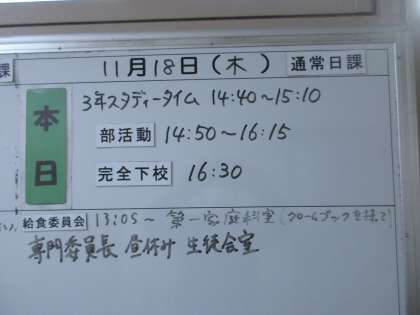 課 11月18日(木) 通常日課
本日
3年スタディータイム 14:40~15:10
部活動 14:50~16:15
完全下校 16:30
給食委員会 13:05~ 第一家庭科室(クロームブックを持って)
専門委員長 昼休み 生徒会室